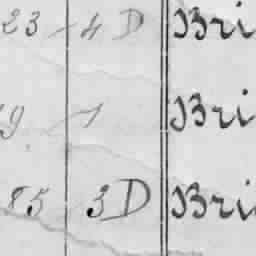 23 4 D Bri
9 1 Bri
85 3D Bri